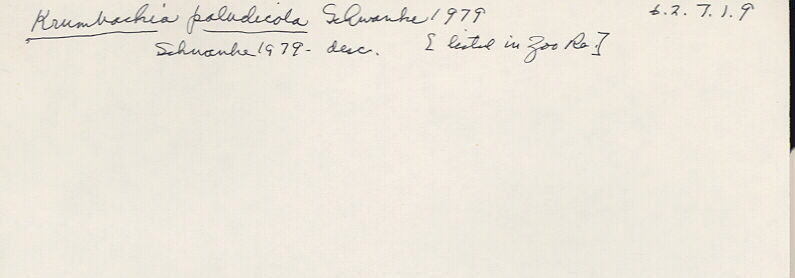 Krumbachia paludicola Schwanke 1979 6.2.7.1.9
Schwanke 1979 - desc. [listed in Zoo Re.]